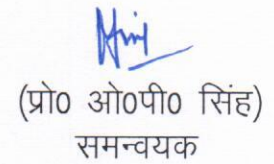 (प्रो० ओ०पी० सिंह)
समन्वयक